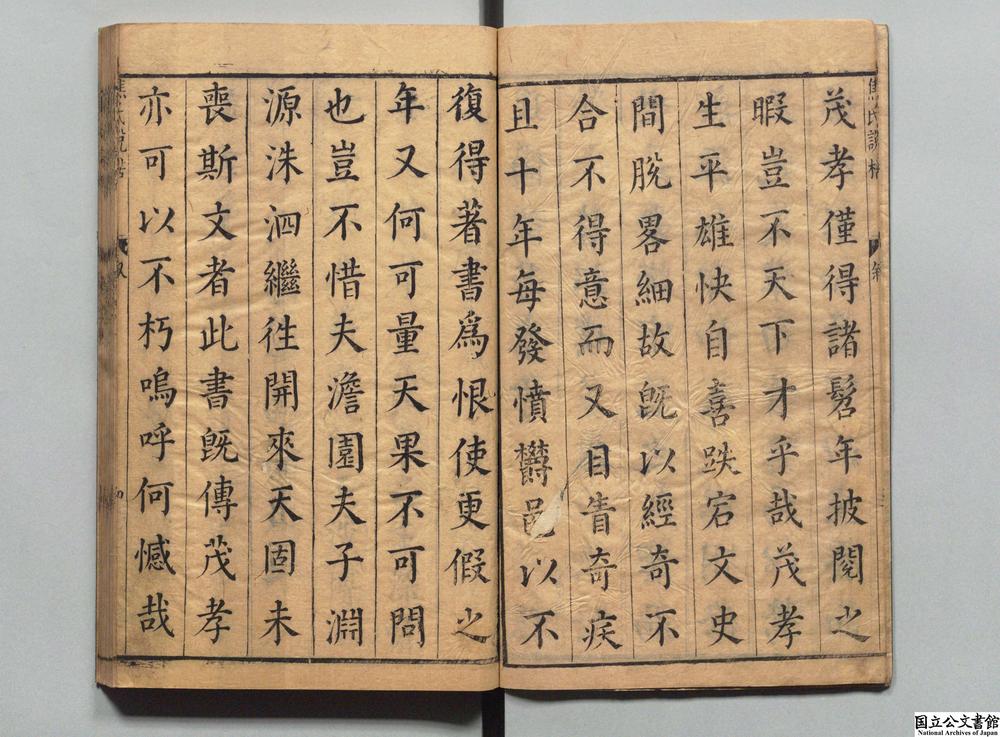 茂孝僅得諸髫年披閱之
暇豈不天下才乎哉茂孝
生平雄快自喜跌宕文史
間脫畧細故旣以經奇不
合不得意而又目眚奇疾
且十年每發憤欝邑以不
復得著書爲恨使更假之
年又何可量天果不可問
也豈不惜夫澹園夫子淵
源洙泗繼徃開來天固未
喪斯文者此書旣傳茂孝
亦可以不朽嗚呼何憾哉
焦氏說楛
國立公文書館
National Archives of Japan